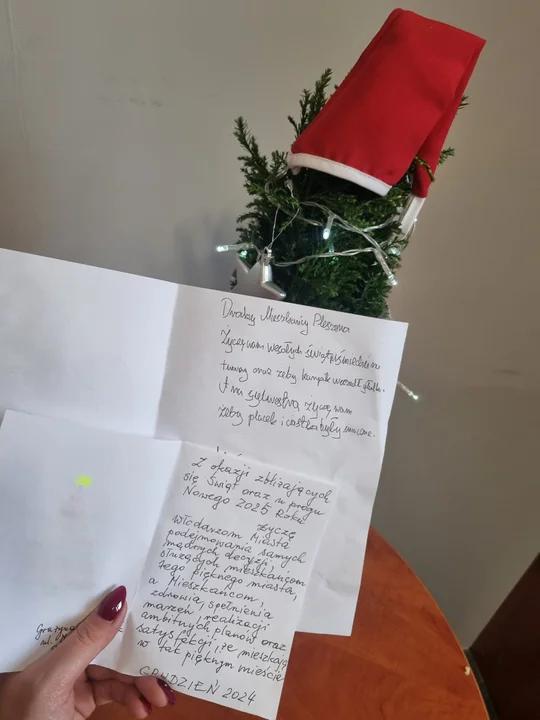 Drodzy Mieszkańcy Pleszewa
Życzę wam wesołych świąt
twarzy oraz żeby
I na sylwestra życzę wam
żeby placek i ciastka były
Z okazji zbliżających
się Świąt oraz w progu
Nowego 2025 Roku
życzę
Włodarzom Miasta
podejmowania samych
mądrych decyzji,
służących mieszkańcom
tego pięknego miasta,
a Mieszkańcom,
zdrowia, spełnienia
marzeń, realizacji
ambitnych planów oraz
satysfakcji, że mieszkają
w tak pięknym mieście
GRUDZIEŃ 2024
Grażyna
ul.